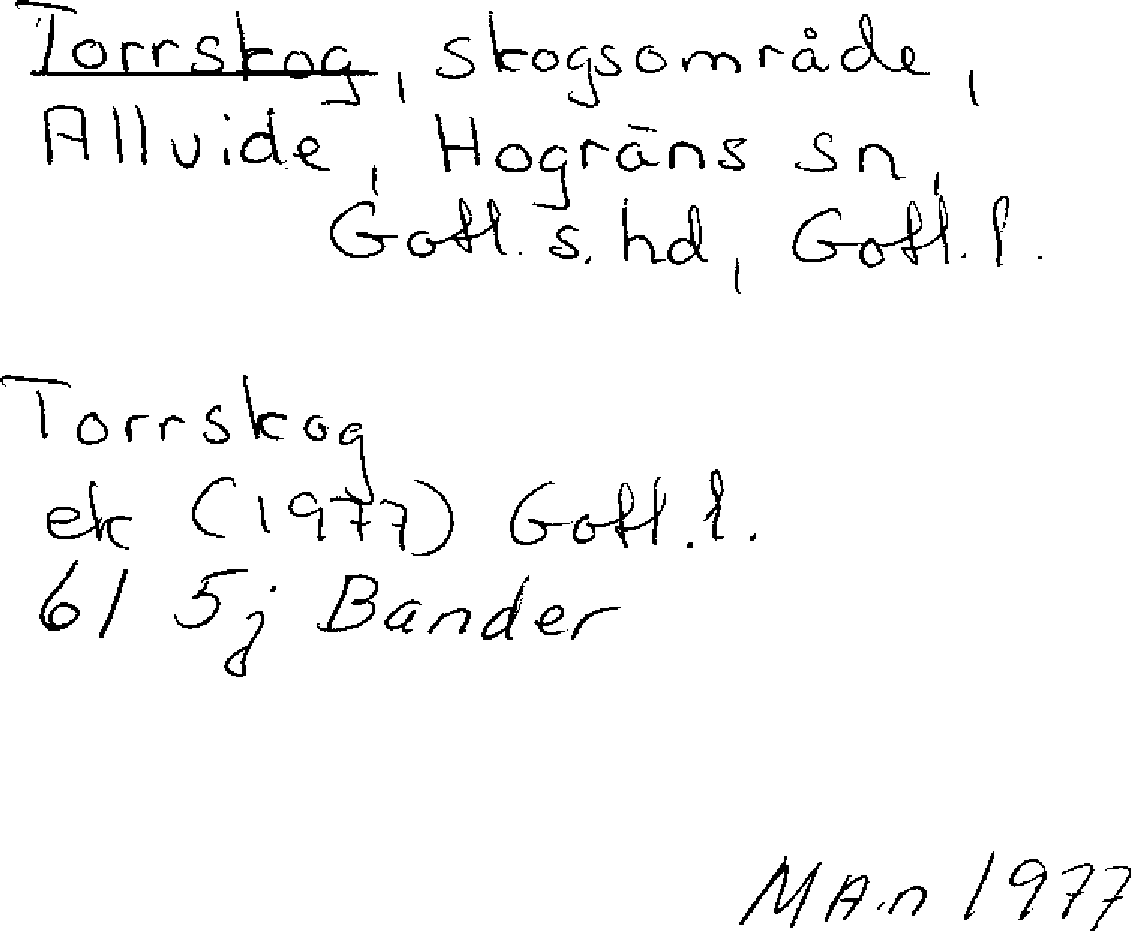 Torrskog, skogsområde,
Allvide, Hogräns sn,
Gotl. s. hd, Gotl. l.
Torrskog
ek (1977) Gotl. l.
6I 5j Bander
MAn 1977